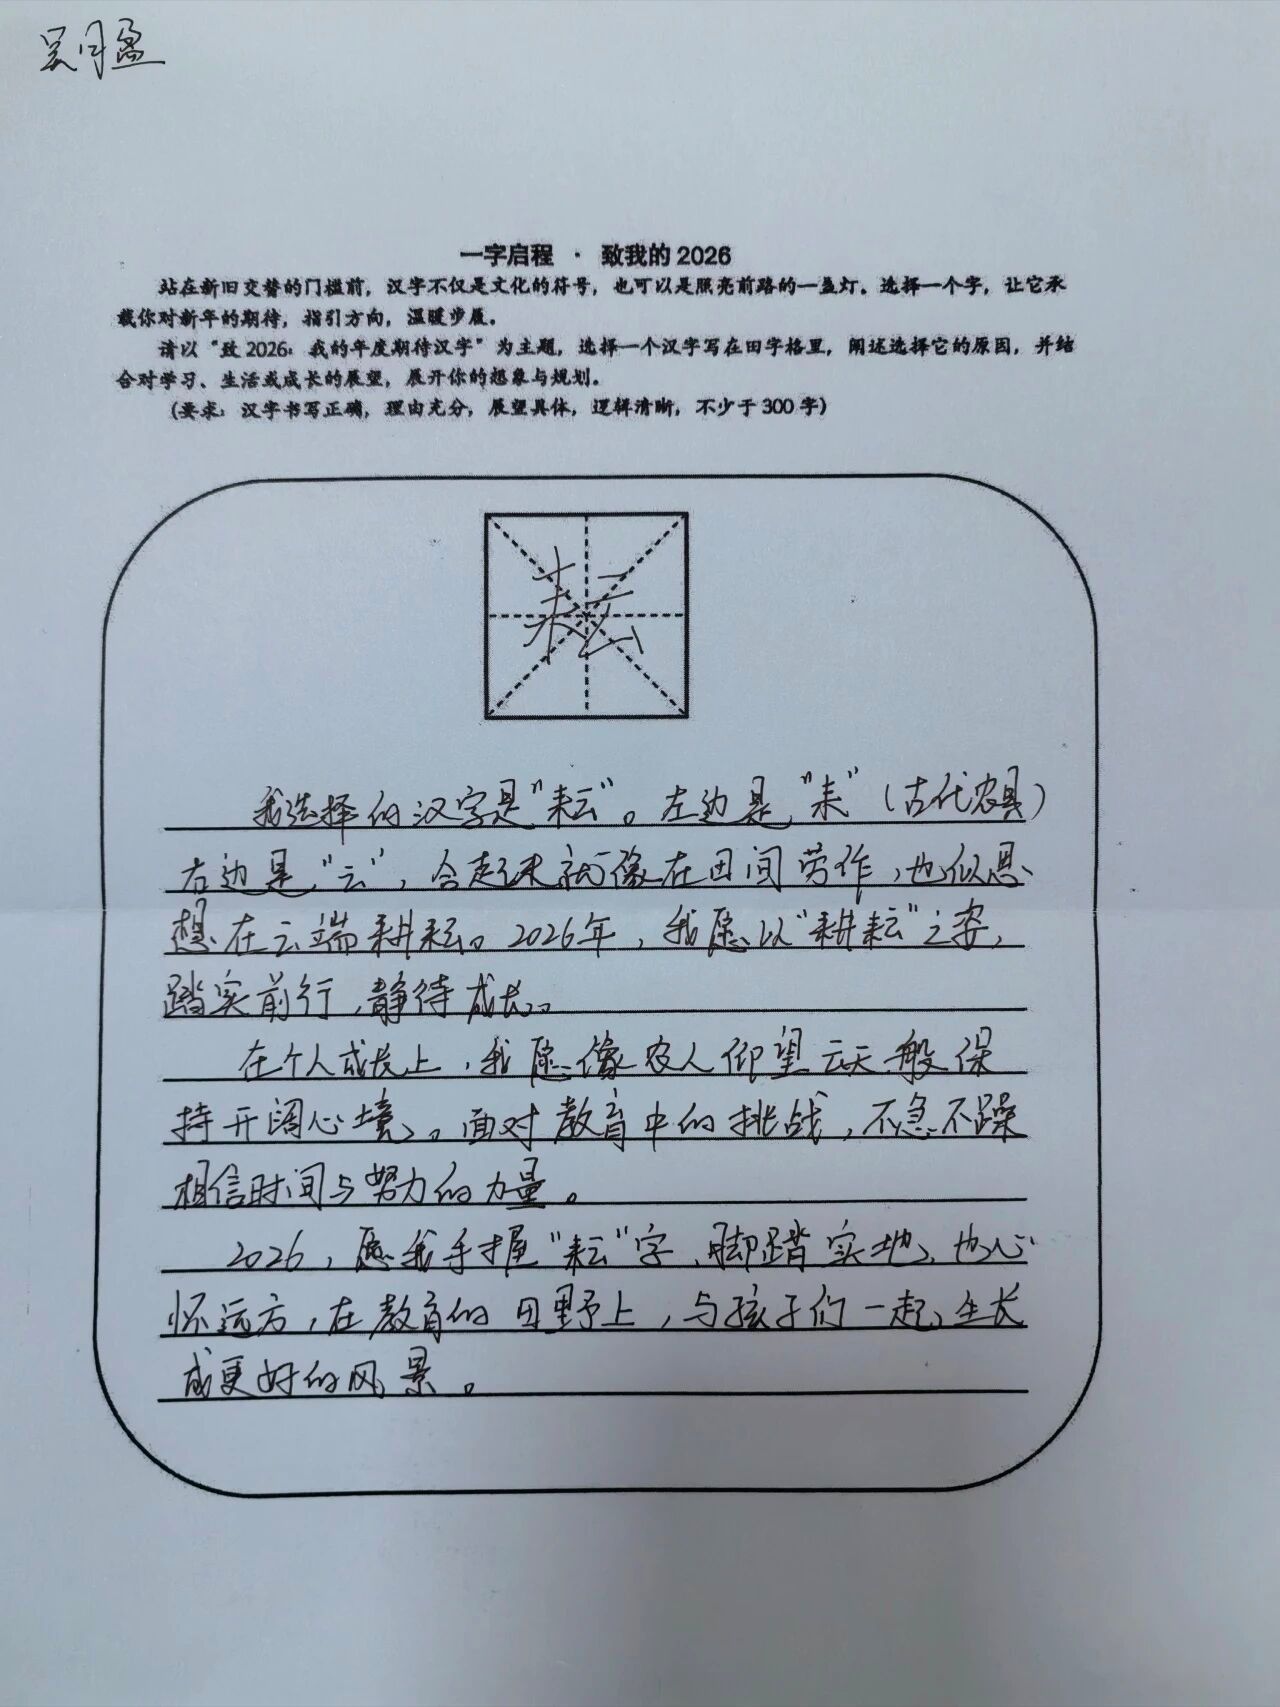 吴月盈
一字启程 · 致我的2026
站在新旧交替的门槛前，汉字不仅是文化的符号，也可以是照亮前路的一盏灯。选择一个字，让它承
载你对新年的期待，指引方向，温暖步履。
请以“致2026：我的年度期待汉字”为主题，选择一个汉字写在田字格里，阐述选择它的原因，并结
合对学习、生活或成长的展望，展开你的想象与规划。
（要求：汉字书写正确，理由充分，展望具体，逻辑清晰，不少于300字）
耘
我选择的汉字是“耘”。左边是“耒”（古代农具）
右边是“云”，合起来就像在田间劳作，也似思
想在云端耕耘。2026年，我愿以“耕耘”之姿，
踏实前行，静待成长。
在个人成长上，我愿像农人仰望云天般保
持开阔心境。面对教育中的挑战，不急不躁
相信时间与努力的力量。
2026，愿我手握“耘”字，脚踏实地，也心
怀远方，在教育的田野上，与孩子们一起生长
成更好的风景。